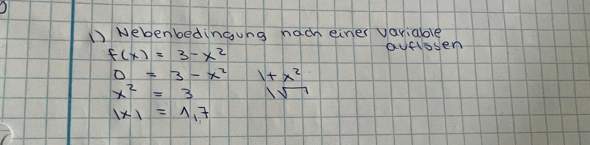 1) Nebenbedingung nach einer variable
auflösen
f(x) = 3 - x²
0 = 3 - x² | + x²
x² = 3 | √
|x| = 1,7